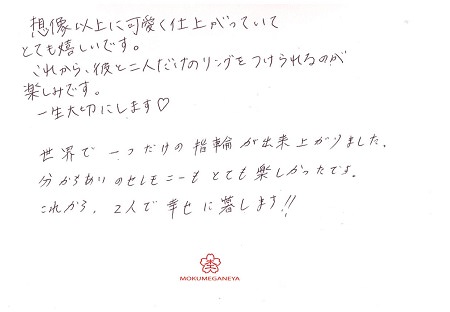 想像以上に可愛く仕上がっていて
とても嬉しいです。
これから、彼と二人だけのリングをつけられるのが
楽しみです。
一生大切にします♡
世界で一つだけの指輪が出来上がりました.
分かちあいのセレモニーもとても楽しかったです。
これから、2人で幸せに暮します!!
MOKUMEGANEYA